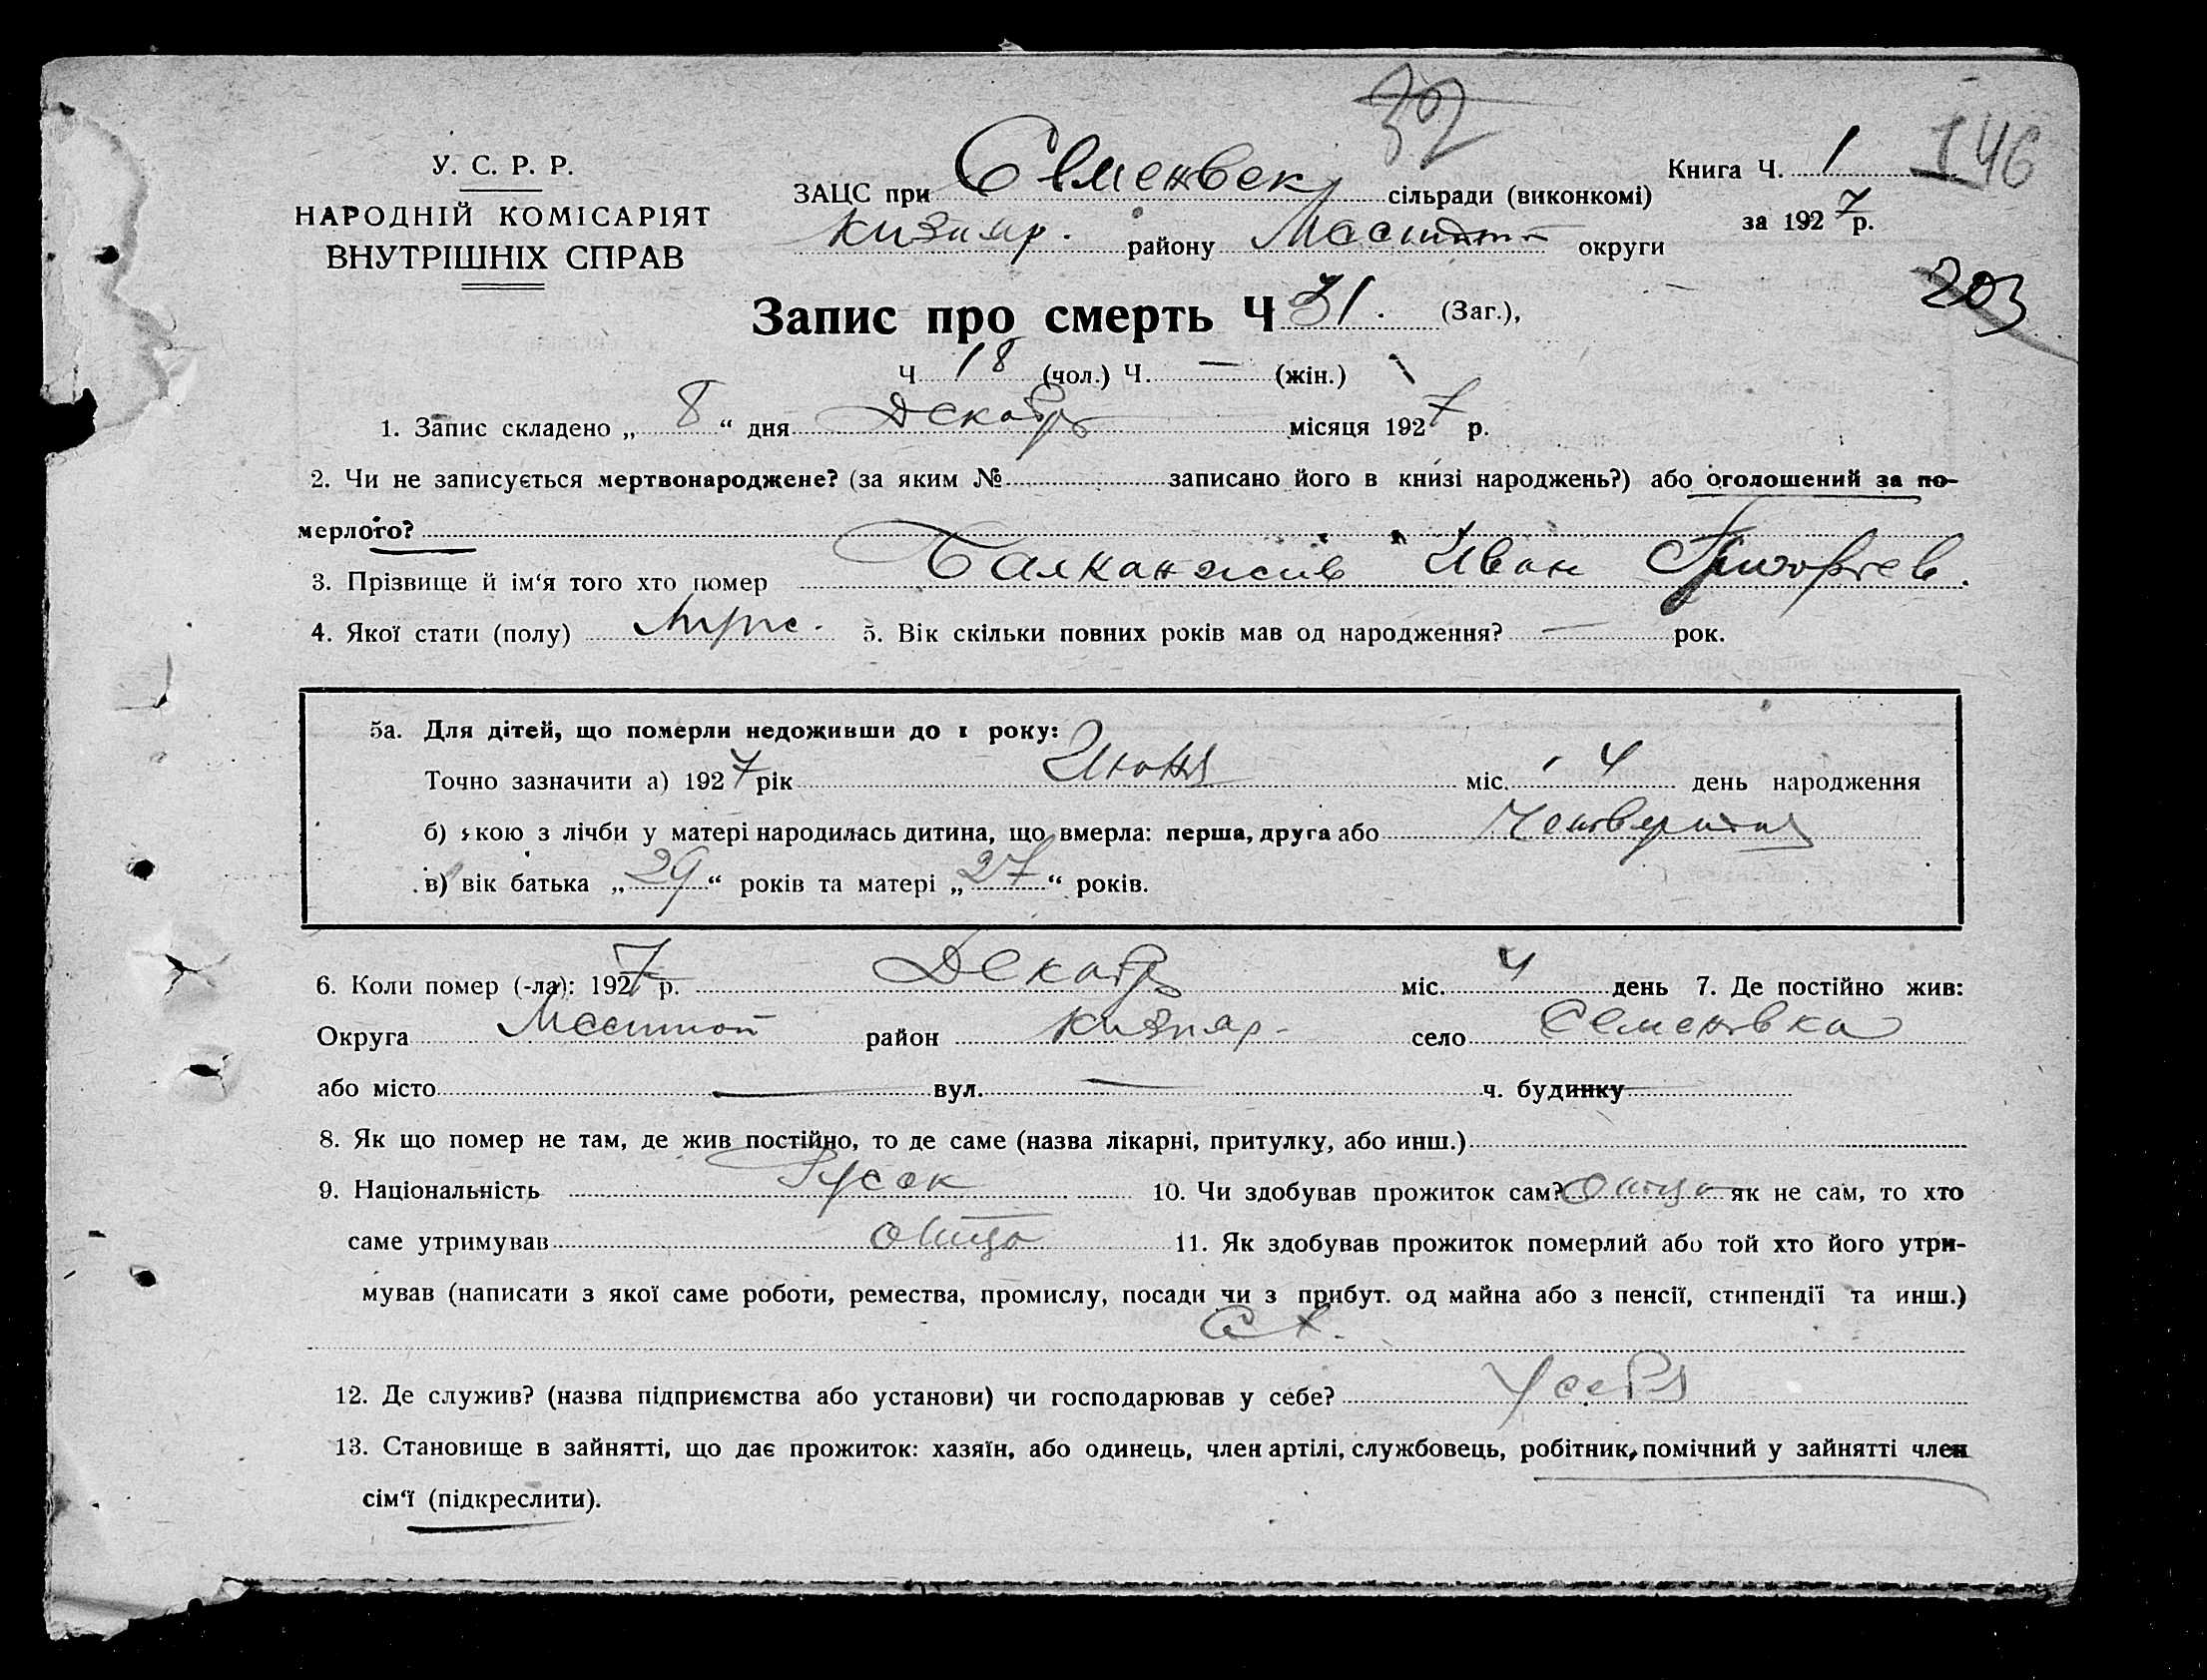 32
У. С. Р. Р.
НАРОДНІЙ КОМІСАРІЯТ
ВНУТРІШНІХ СПРАВ
ЗАЦС при Семеновск сільради (виконкомі)
Кизияр. району округи
Книга Ч. 1 146
за 1927 р.
203
Запис про смерть Ч 31. (Заг.),
Ч 18 (чол.) Ч. — (жін.)
1. Запис складено „ 8 “ дня Декабр місяця 1927 р.
2. Чи не записується мертвонароджене? (за яким № записано його в книзі народжень?) або оголошений за по-
мерлого?
3. Прізвище й ім‘я того хто помер Балканжив Иван Григорьев.
4. Якої стати (полу) 5. Вік скільки повних років мав од народження? — рок.
5а. Для дітей, що померли недоживши до 1 року:
Точно зазначити а) 1927 рік Июня міс. 4 день народження
б) якою з лічби у матері народилась дитина, що вмерла: перша, друга або Четвертая
в) вік батька „ 29 “ років та матері „ 27 “ років.
6. Коли помер (-ла): 1927 р. Декабр міс. 4 день 7. Де постійно жив:
Округа район Кизияр село Семеновка
або місто — вул. — ч. будинку
8. Як що помер не там, де жив постійно, то де саме (назва лікарні, притулку, або инш.)
9. Національність Русск 10. Чи здобував прожиток сам? Отца як не сам, то хто
саме утримував Отца 11. Як здобував прожиток померлий або той хто його утри-
мував (написати з якої саме роботи, ремества, промислу, посади чи з прибут. од майна або з пенсії, стипендії та инш.)
С Х.
12. Де служив? (назва підприємства або установи) чи господарював у себе? У себя
13. Становище в зайнятті, що дає прожиток: хазяїн, або одинець, член артілі, службовець, робітник, помічний у зайнятті член
сім‘ї (підкреслити).